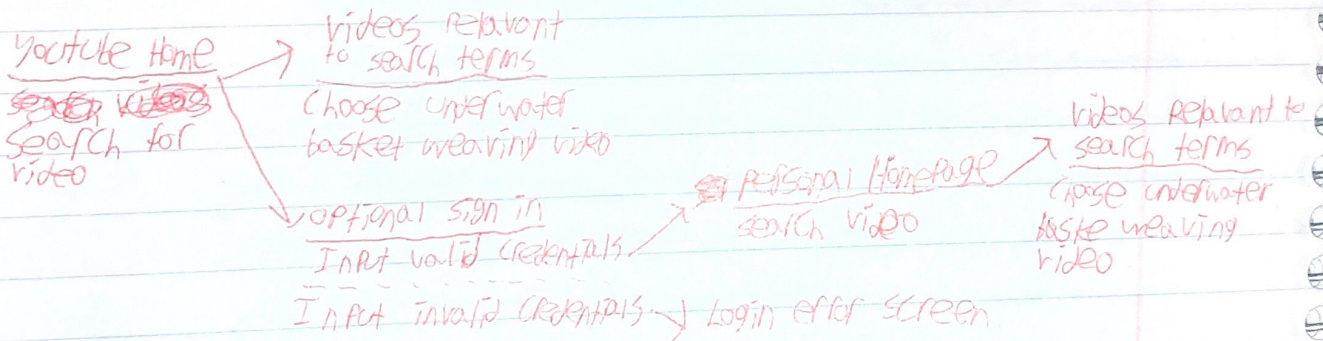 Youtube Home
search for
video
videos relavant
to search terms
choose underwater
basket weaving video
optional sign in
Input valid credentials
Input invalid credentials
Login error screen
personal Homepage
search video
videos relavant to
search terms
choose underwater
baske weaving
video